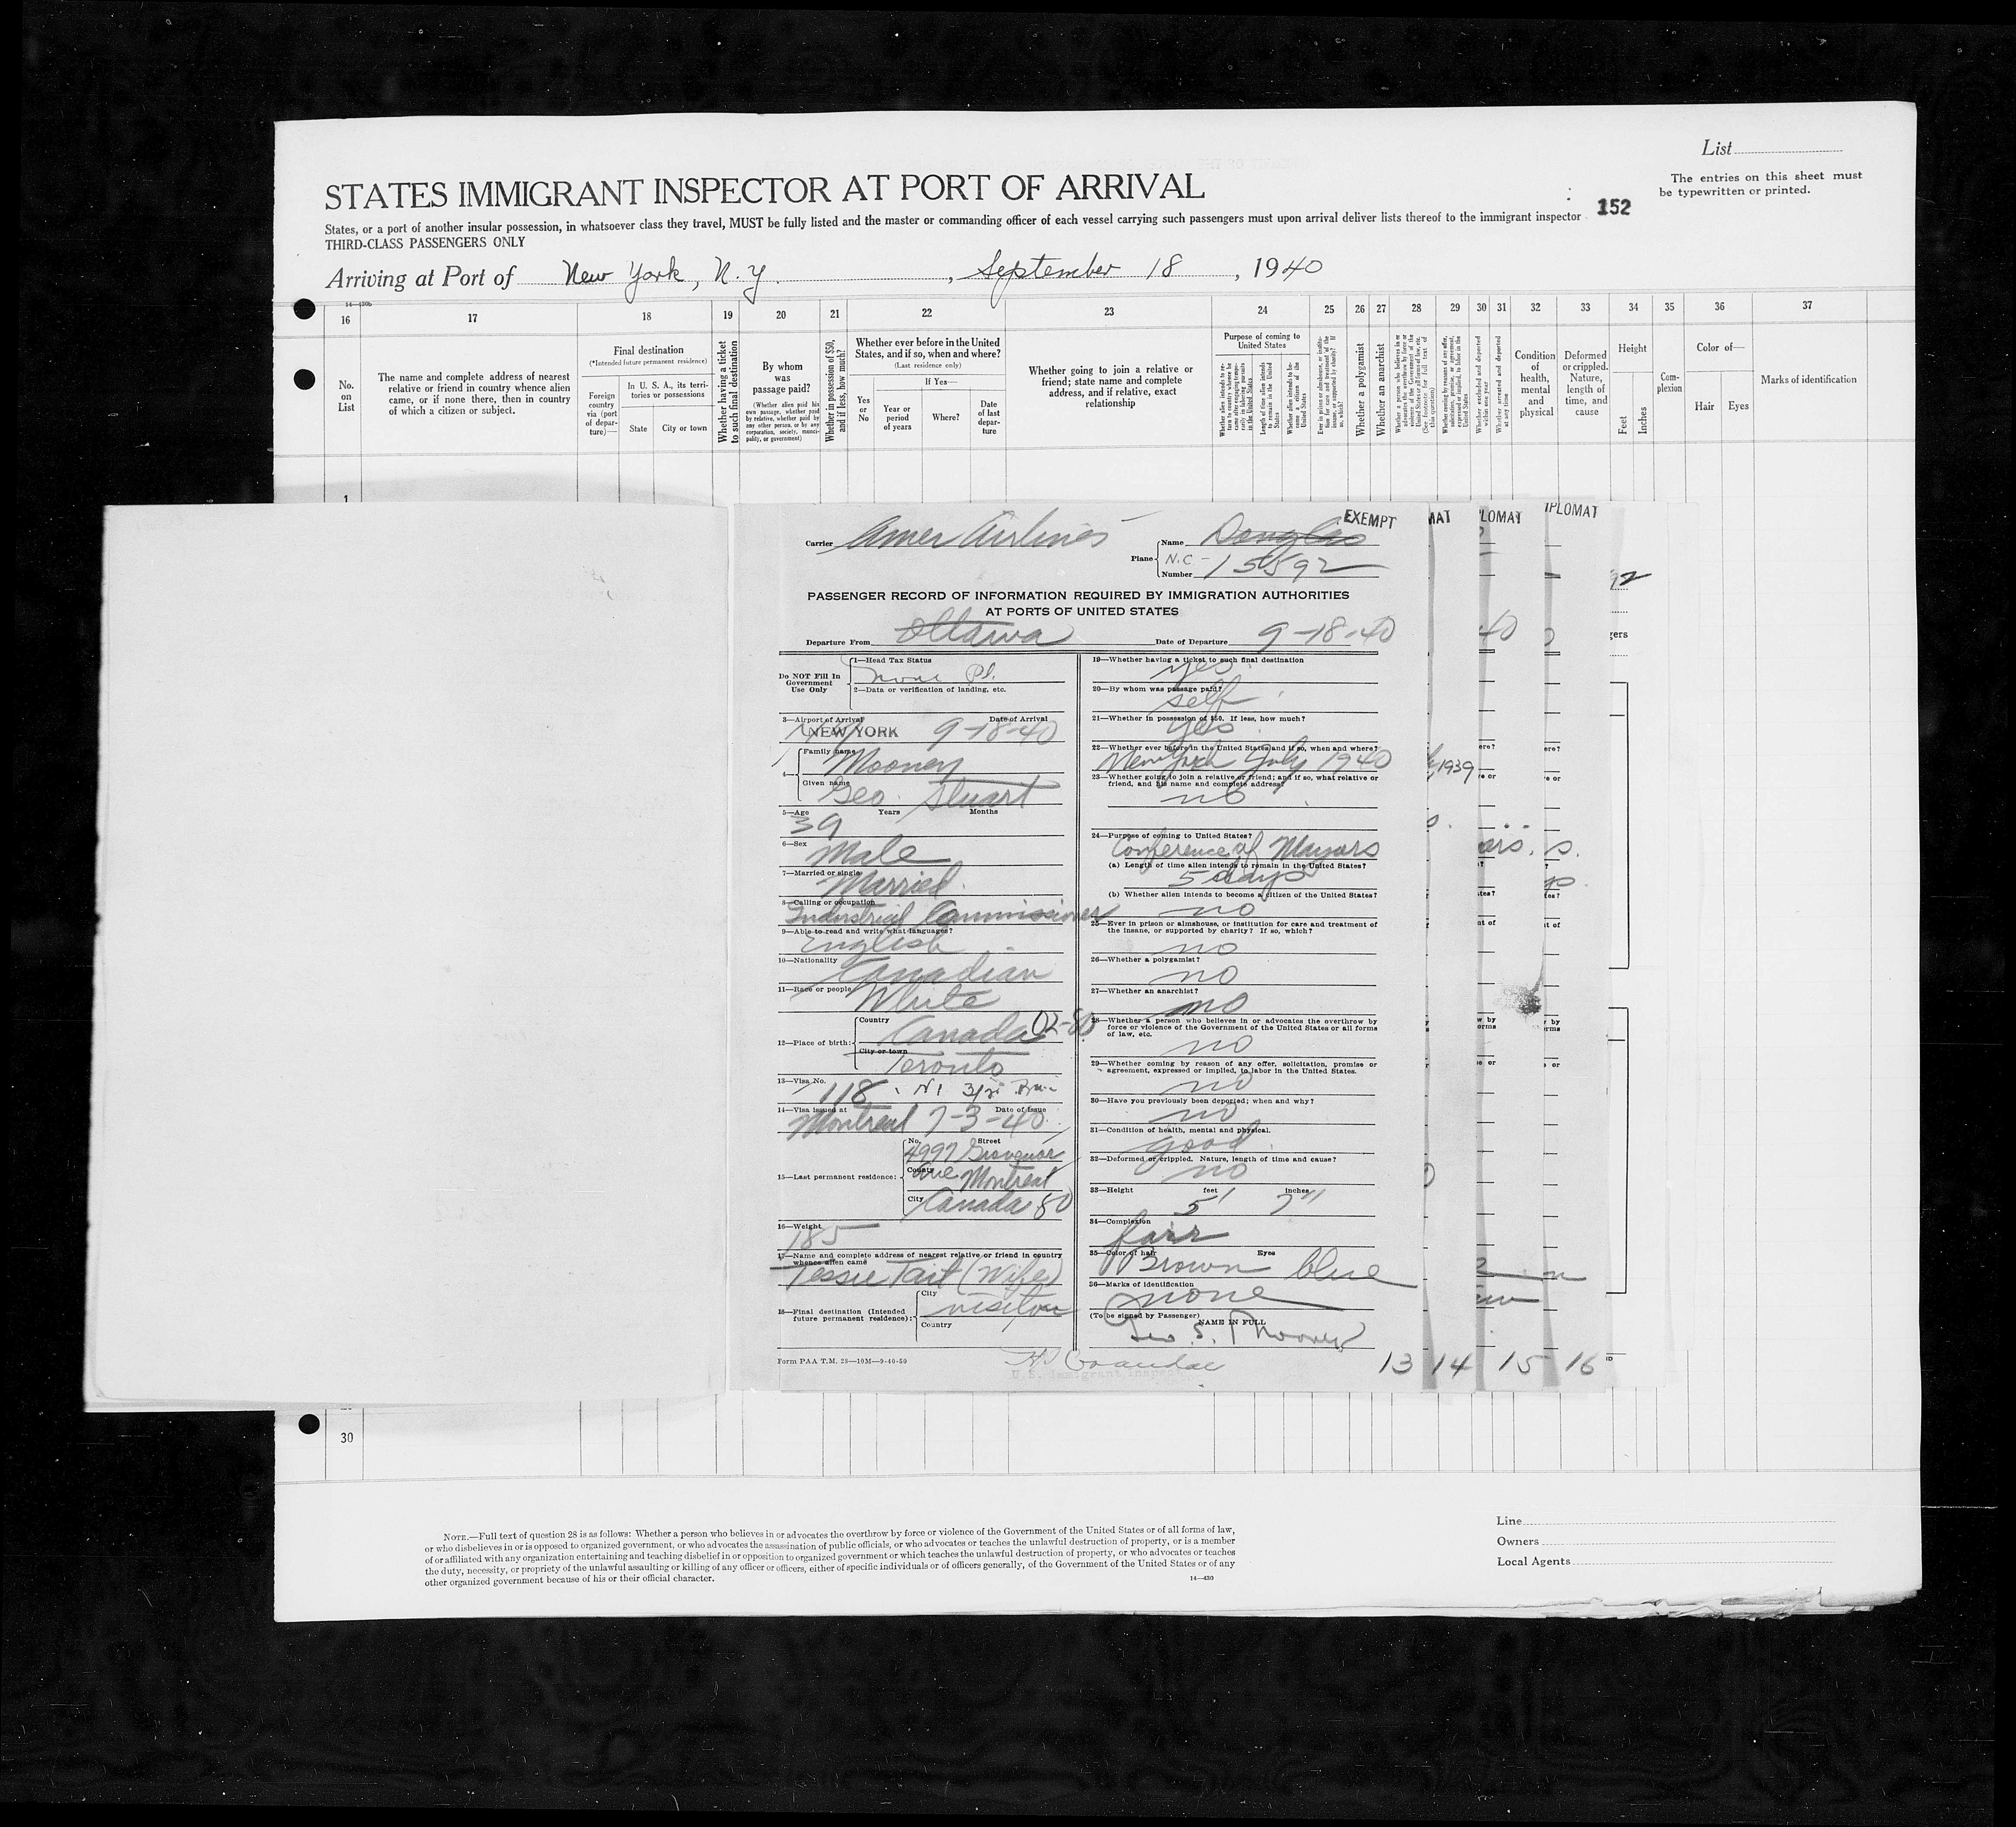 List
The entries on this sheet must
be typewritten or printed.
STATES IMMIGRANT INSPECTOR AT PORT OF ARRIVAL
152
States, or a port of another insular possession, in whatsoever class they travel, MUST be fully listed and the master or commanding officer of each vessel carrying such passengers must upon arrival deliver lists thereof to the immigrant inspector
THIRD-CLASS PASSENGERS ONLY
Arriving at Port of New York, N.Y. , September 18 , 1940
16 17 18 19 20 21 22 23 24 25 26 27 28 29 30 31 32 33 34 35 36 37
No. on List
The name and complete address of nearest
relative or friend in country whence alien
came, or if none there, then in country
of which a citizen or subject.
Final destination
(*Intended future permanent residence)
Foreign country via (port of departure)—
In U. S. A., its territories or possessions
State
City or town
Whether having a ticket to such final destination
By whom was passage paid?
(Whether alien paid his own passage, whether paid by relative, whether paid by any other person, or by any corporation, society, municipality, or government)
Whether in possession of $50, and if less, how much?
Whether ever before in the United
States, and if so, when and where?
(Last residence only)
If Yes—
Yes or No
Year or period of years
Where?
Date of last departure
Whether going to join a relative or
friend; state name and complete
address, and if relative, exact
relationship
Purpose of coming to
United States
Length of time alien intends to remain in the United States
Whether alien intends to become a citizen of the United States
Whether a polygamist
Whether an anarchist
Condition of health, mental and physical
Deformed or crippled. Nature, length of time, and cause
Height
Feet
Inches
Complexion
Color of—
Hair
Eyes
Marks of identification
1
EXEMPT
MAT
LOMAT
IPLOMAT
Carrier Amer Airlines
Plane
Name Douglas
N.C -
Number 15592
PASSENGER RECORD OF INFORMATION REQUIRED BY IMMIGRATION AUTHORITIES
AT PORTS OF UNITED STATES
Departure From Ottawa
Date of Departure 9-18-40
Do NOT Fill In
Government
Use Only
1—Head Tax Status
none
2—Data or verification of landing, etc.
3—Airport of Arrival
Date of Arrival
NEW YORK 9-18-40
4— Family name
Mooney
Given name
Geo. Stuart
5—Age Years Months
39
6—Sex
Male
7—Married or single
Married
8—Calling or occupation
Industrial Commissioner
9—Able to read and write what languages?
English
10—Nationality
Canadian
11—Race or people
White
12—Place of birth:
Country
Canada 02-80
City or town
Toronto
13—Visa No.
118
14—Visa issued at Date of Issue
Montreal 7-3-40
15—Last permanent residence:
No. Street
4997 Grosvenor
County
Ave Montreal
City
Canada 80
16—Weight
185
17—Name and complete address of nearest relative or friend in country
whence alien came
Tessie Tait (Wife)
18—Final destination (Intended
future permanent residence):
City
visitor
Country
Form PAA T.M. 28—10M—9-40-50
19—Whether having a ticket to such final destination
yes
20—By whom was passage paid?
self
21—Whether in possession of $50. If less, how much?
yes
22—Whether ever before in the United States and if so, when and where?
New York July 1940
23—Whether going to join a relative or friend; and if so, what relative or
friend, and his name and complete address?
no
24—Purpose of coming to United States?
Conference of Mayors
(a) Length of time alien intends to remain in the United States?
5 days
(b) Whether alien intends to become a citizen of the United States?
no
25—Ever in prison or almshouse, or institution for care and treatment of
the insane, or supported by charity? If so, which?
no
26—Whether a polygamist?
no
27—Whether an anarchist?
no
28—Whether a person who believes in or advocates the overthrow by
force or violence of the Government of the United States or all forms
of law, etc.
no
29—Whether coming by reason of any offer, solicitation, promise or
agreement, expressed or implied, to labor in the United States.
no
30—Have you previously been deported; when and why?
no
31—Condition of health, mental and physical.
good
32—Deformed or crippled. Nature, length of time and cause?
no
33—Height feet inches
5' 7"
34—Complexion
fair
35—Color of hair Eyes
Brown blue
36—Marks of identification
none
(To be signed by Passenger)
NAME IN FULL
Geo. S. Mooney
U.S. Immigrant Inspector
1939
13 14 15 16
30
NOTE.—Full text of question 28 is as follows: Whether a person who believes in or advocates the overthrow by force or violence of the Government of the United States or of all forms of law,
or who disbelieves in or is opposed to organized government, or who advocates the assassination of public officials, or who advocates or teaches the unlawful destruction of property, or is a member
of or affiliated with any organization entertaining and teaching disbelief in or opposition to organized government or which teaches the unlawful destruction of property, or who advocates or teaches
the duty, necessity, or propriety of the unlawful assaulting or killing of any officer or officers, either of specific individuals or of officers generally, of the Government of the United States or of any
other organized government because of his or their official character.
14—430
Line
Owners
Local Agents